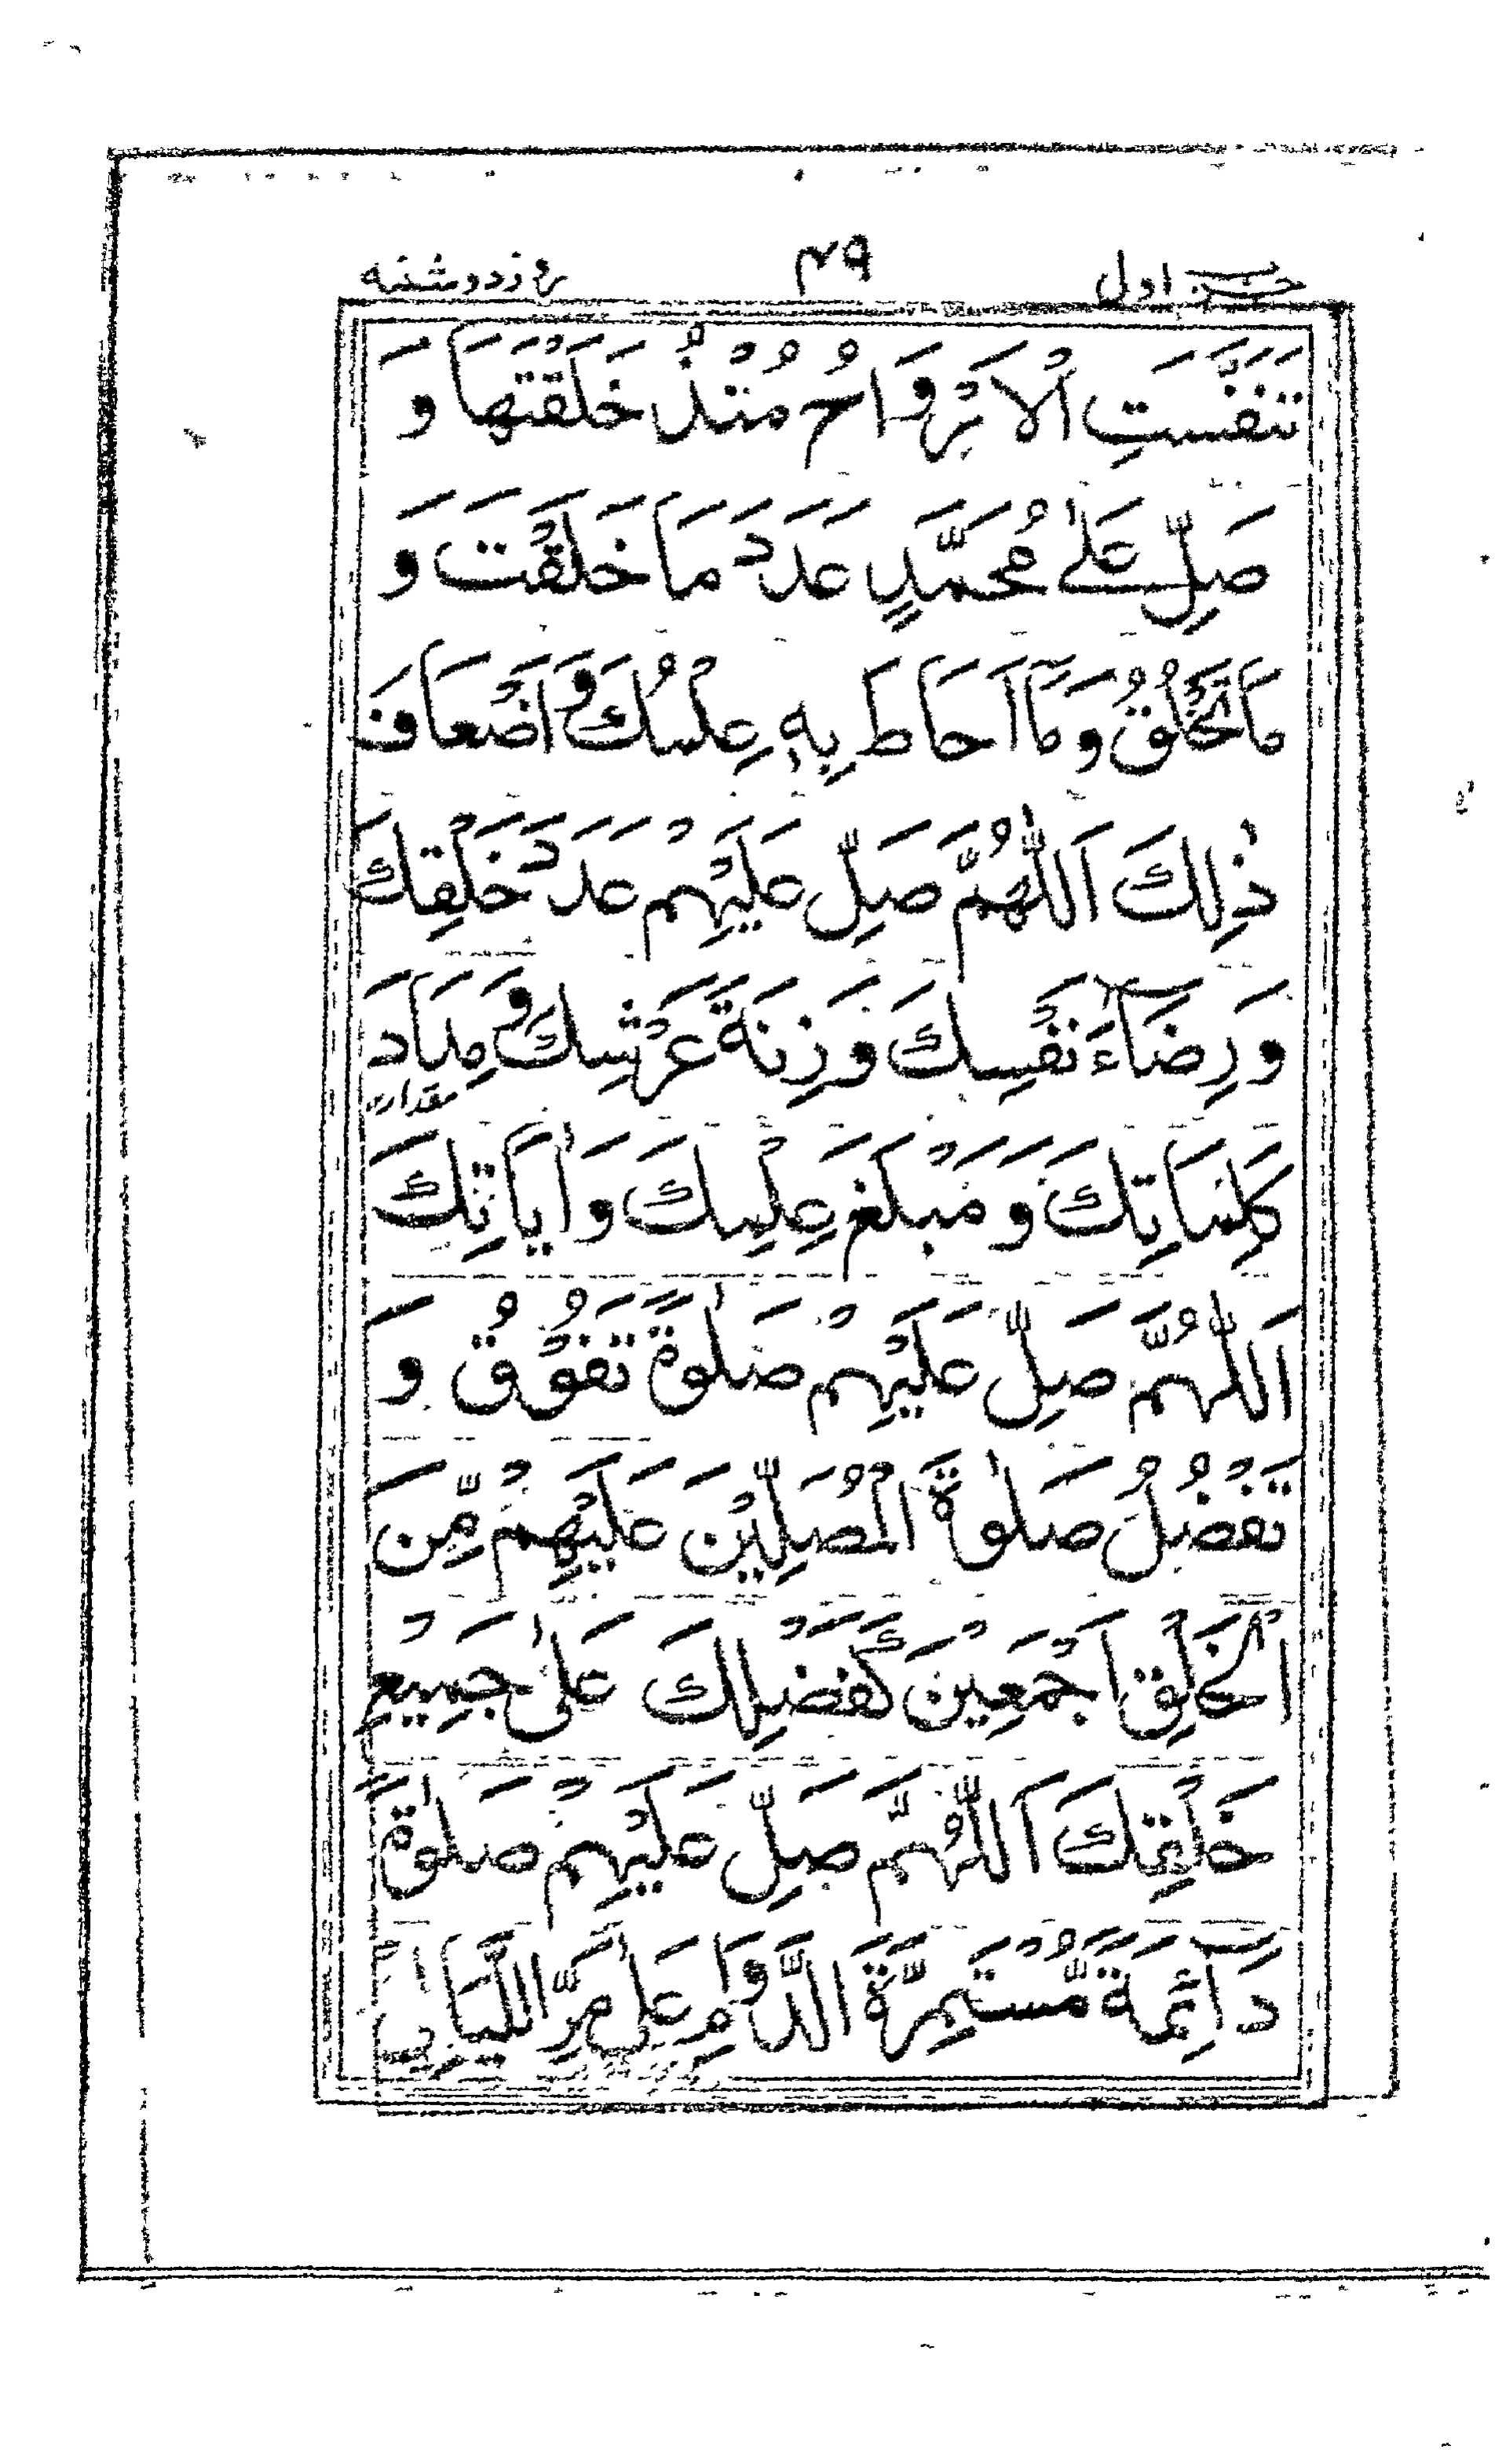 حزب اول ۴۹ روز دوشنبه
تَنَفَّسَتِ الْاَرْوَاحُ مُنْذُ خَلَقْتَهَا وَ
صَلِّ عَلٰى مُحَمَّدٍ عَدَدَ مَا خَلَقْتَ وَ
مَا تَخْلُقُ وَمَآ اَحَاطَ بِهٖ عِلْمُكَ وَاَضْعَافَ
ذٰلِكَ اَللّٰهُمَّ صَلِّ عَلَيْهِمْ عَدَدَ خَلْقِكَ
وَرِضَآءَ نَفْسِكَ وَزِنَةَ عَرْشِكَ وَمِدَادَ
مقدار
كَلِمَاتِكَ وَمَبْلَغَ عِلْمِكَ وَاٰيَاتِكَ
اَللّٰهُمَّ صَلِّ عَلَيْهِمْ صَلٰوةً تَفُوْقُ وَ
تَفْضُلُ صَلٰوةَ الْمُصَلِّيْنَ عَلَيْهِمْ مِّنَ
الْخَلْقِ اَجْمَعِيْنَ كَفَضْلِكَ عَلٰى جَمِيْعِ
خَلْقِكَ اَللّٰهُمَّ صَلِّ عَلَيْهِمْ صَلٰوةً
دَآئِمَةً مُّسْتَمِرَّةَ الدَّوَامِ عَلٰى مَرِّ اللَّيَالِيْ